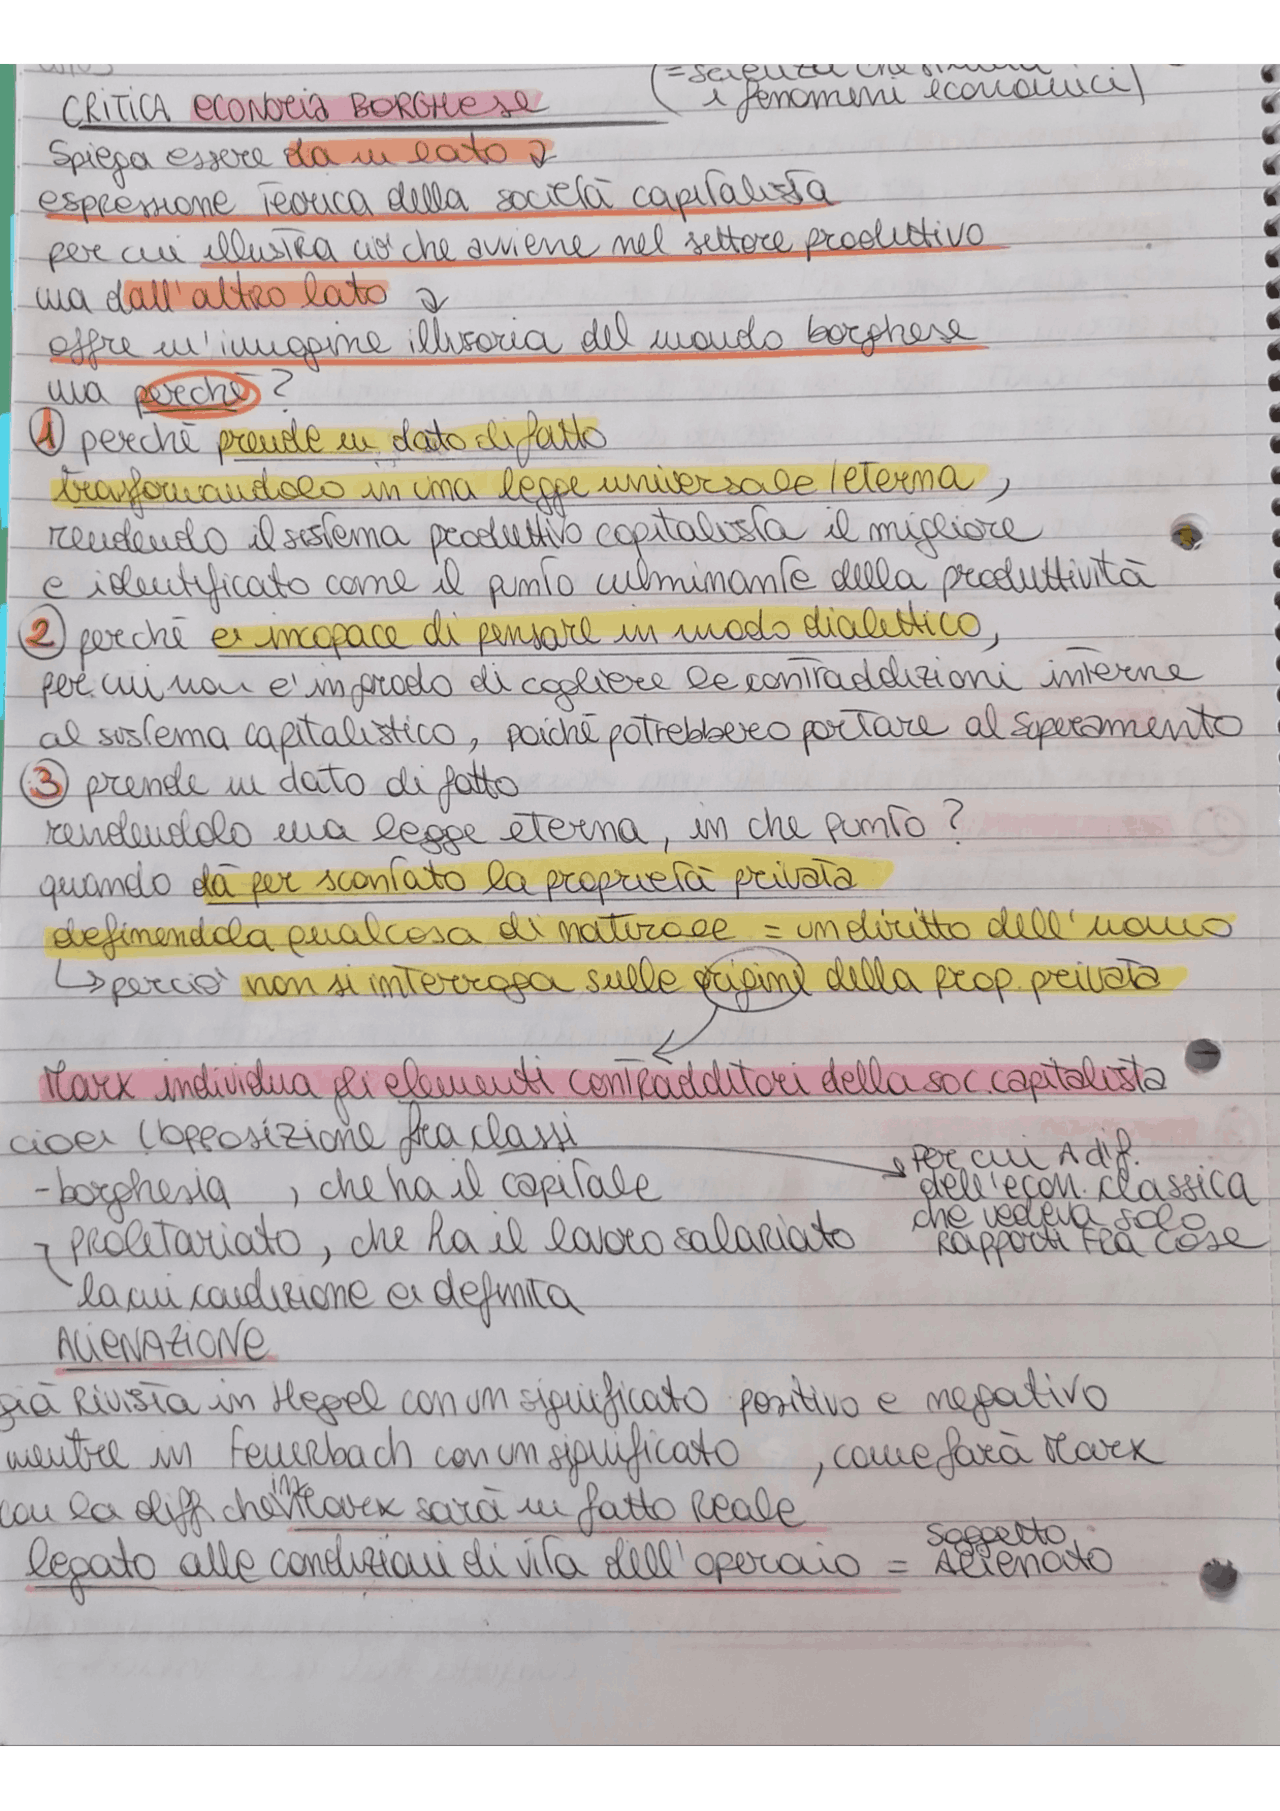 (= scienza che studia
i fenomeni economici)
CRITICA ECONOMIA BORGHESE
Spiega essere da un lato
espressione teorica della società capitalista
per cui illustra ciò che avviene nel settore produttivo
ma dall'altro lato
offre un'immagine illusoria del mondo borghese
ma perchè?
1 perchè prende un dato di fatto
trasformandolo in una legge universale/eterna,
rendendo il sistema produttivo capitalista il migliore
e identificato come il punto culminante della produttività
2 perchè è incapace di pensare in modo dialettico,
per cui non è in grado di cogliere le contraddizioni interne
al sistema capitalistico, poichè potrebbero portare al superamento
3 prende un dato di fatto
rendendolo una legge eterna, in che punto?
quando dà per scontato la proprietà privata
definendola qualcosa di naturale = un diritto dell'uomo
↳ perciò non si interroga sulle origini della prop. privata
Marx individua gli elementi contradditori della soc. capitalista
cioè l'opposizione fra classi
per cui A dif.
dell'econ. classica
che vedeva solo
rapporti fra cose
- borghesia, che ha il capitale
- proletariato, che ha il lavoro salariato
la cui condizione è definita
ALIENAZIONE
già rivista in Hegel con un significato positivo e negativo
mentre in Feuerbach con un significato , come farà Marx
con la diff. che in Marx sarà un fatto reale
legato alle condizioni di vita dell'operaio = soggetto
alienato